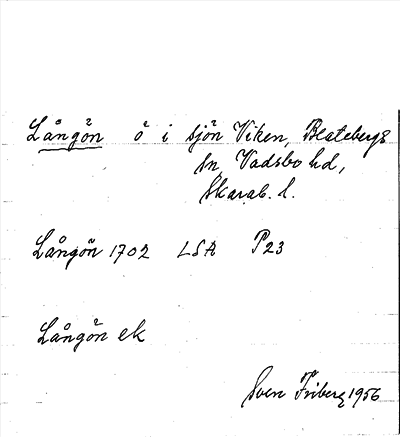 Långön ö i sjön Viken, Beatebergs
sn, Vadsbo hd,
Skarab. l.
Långön 1702 LSA P23
Långön ek
Sven Friberg 1956